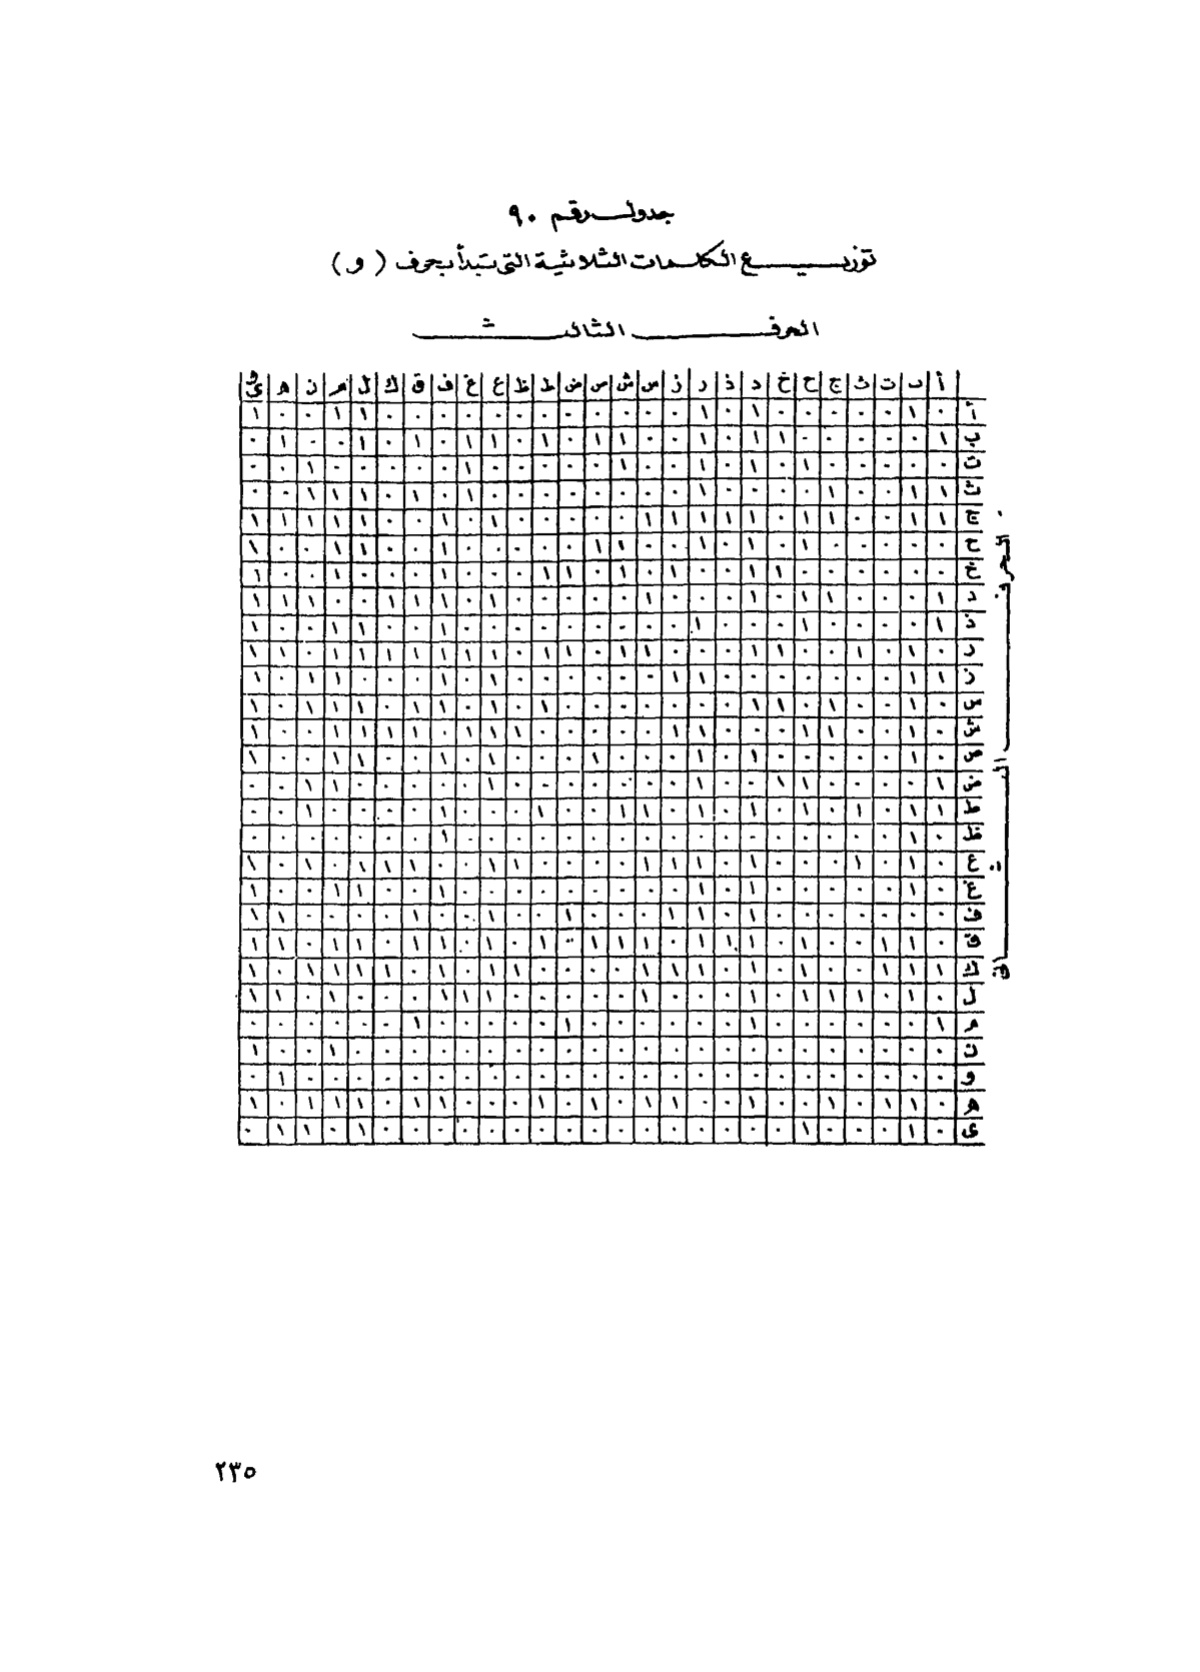 جدول رقم ٩٠
توزيع الكلمات الثلاثية التى تبدأ بحرف ( و )
الحرف الثالث
أ ب ت ث ج ح خ د ذ ر ز س ش ص ض ط ظ ع غ ف ق ك ل م ن ه وى
الحرف الثانى
أ ٠ ١ ٠ ٠ ٠ ٠ ٠ ١ ٠ ١ ٠ ٠ ٠ ٠ ٠ ٠ ٠ ٠ ٠ ٠ ٠ ٠ ١ ١ ٠ ٠ ١
ب ١ ٠ ٠ ٠ ٠ ٠ ١ ١ ٠ ١ ٠ ٠ ١ ١ ٠ ١ ٠ ١ ١ ٠ ١ ٠ ١ ٠ ٠ ١ ٠
ت ٠ ٠ ٠ ٠ ٠ ١ ٠ ١ ٠ ١ ٠ ٠ ١ ٠ ٠ ٠ ٠ ٠ ١ ٠ ٠ ٠ ٠ ٠ ١ ٠ ٠
ث ١ ١ ٠ ٠ ١ ٠ ٠ ٠ ٠ ١ ٠ ٠ ٠ ٠ ٠ ٠ ٠ ٠ ١ ٠ ١ ٠ ١ ١ ١ ٠ ٠
ج ١ ١ ٠ ٠ ١ ١ ٠ ١ ١ ١ ١ ١ ٠ ٠ ٠ ٠ ٠ ١ ٠ ١ ٠ ٠ ١ ١ ١ ١ ١
ح ٠ ٠ ٠ ٠ ٠ ١ ٠ ١ ٠ ١ ٠ ٠ ١ ١ ٠ ٠ ٠ ٠ ٠ ١ ٠ ٠ ١ ١ ٠ ٠ ١
خ ٠ ٠ ٠ ٠ ٠ ٠ ١ ١ ٠ ٠ ١ ٠ ١ ٠ ١ ١ ٠ ٠ ٠ ١ ٠ ٠ ٠ ١ ٠ ٠ ١
د ١ ٠ ٠ ٠ ١ ١ ٠ ١ ٠ ٠ ٠ ١ ٠ ٠ ٠ ٠ ٠ ١ ٠ ١ ١ ١ ٠ ٠ ١ ١ ١
ذ ١ ٠ ٠ ٠ ٠ ١ ٠ ٠ ٠ ١ ٠ ٠ ٠ ٠ ٠ ٠ ٠ ٠ ٠ ١ ٠ ٠ ١ ١ ٠ ٠ ١
ر ٠ ١ ٠ ١ ٠ ٠ ١ ١ ٠ ٠ ٠ ١ ١ ٠ ١ ١ ٠ ١ ١ ١ ١ ١ ١ ١ ٠ ١ ١
ز ١ ١ ٠ ٠ ٠ ٠ ٠ ٠ ٠ ١ ١ ٠ ٠ ٠ ٠ ٠ ٠ ١ ٠ ١ ٠ ٠ ٠ ١ ١ ٠ ١
س ٠ ١ ٠ ٠ ١ ٠ ١ ١ ٠ ٠ ٠ ٠ ٠ ٠ ٠ ١ ٠ ١ ٠ ١ ١ ٠ ١ ١ ١ ٠ ١
ش ٠ ١ ٠ ٠ ١ ١ ٠ ٠ ٠ ١ ١ ٠ ٠ ٠ ٠ ٠ ١ ١ ١ ٠ ١ ١ ١ ١ ٠ ٠ ١
ص ٠ ١ ٠ ٠ ٠ ٠ ٠ ١ ٠ ١ ٠ ٠ ٠ ١ ٠ ٠ ٠ ١ ٠ ١ ٠ ٠ ١ ١ ٠ ٠ ١
ض ١ ٠ ٠ ٠ ٠ ١ ١ ٠ ٠ ١ ٠ ٠ ٠ ٠ ٠ ٠ ٠ ١ ٠ ٠ ٠ ٠ ٠ ١ ١ ٠ ٠
ط ١ ١ ٠ ١ ٠ ١ ٠ ١ ٠ ١ ٠ ١ ١ ٠ ٠ ١ ٠ ٠ ٠ ١ ٠ ٠ ٠ ٠ ١ ٠ ٠
ظ ٠ ١ ٠ ٠ ٠ ٠ ٠ ٠ ٠ ٠ ٠ ٠ ٠ ٠ ٠ ٠ ٠ ٠ ٠ ١ ٠ ٠ ٠ ٠ ٠ ٠ ٠
ع ٠ ١ ٠ ١ ٠ ٠ ٠ ١ ٠ ١ ١ ١ ٠ ٠ ٠ ٠ ١ ١ ٠ ٠ ١ ١ ١ ٠ ١ ٠ ١
غ ٠ ١ ٠ ٠ ٠ ٠ ٠ ١ ٠ ١ ٠ ٠ ٠ ٠ ٠ ٠ ٠ ٠ ٠ ١ ٠ ٠ ١ ١ ٠ ٠ ١
ف ٠ ٠ ٠ ٠ ٠ ٠ ٠ ١ ٠ ١ ١ ٠ ٠ ٠ ١ ٠ ٠ ١ ٠ ٠ ١ ٠ ٠ ٠ ٠ ١ ١
ق ٠ ١ ١ ٠ ٠ ١ ٠ ١ ١ ١ ٠ ١ ١ ١ ٠ ١ ٠ ١ ٠ ١ ١ ٠ ١ ١ ٠ ١ ١
ك ١ ١ ١ ٠ ٠ ١ ٠ ١ ٠ ١ ١ ١ ٠ ٠ ٠ ٠ ١ ١ ٠ ١ ٠ ١ ١ ١ ١ ٠ ١
ل ٠ ١ ٠ ١ ١ ١ ٠ ١ ٠ ٠ ٠ ١ ٠ ٠ ٠ ٠ ٠ ١ ١ ١ ٠ ٠ ٠ ١ ٠ ١ ١
م ١ ٠ ٠ ٠ ٠ ٠ ٠ ١ ٠ ٠ ٠ ٠ ٠ ٠ ١ ٠ ٠ ٠ ٠ ٠ ١ ٠ ٠ ٠ ٠ ٠ ٠
ن ٠ ٠ ٠ ٠ ٠ ٠ ٠ ٠ ٠ ٠ ٠ ٠ ٠ ٠ ٠ ٠ ٠ ٠ ٠ ٠ ٠ ٠ ٠ ١ ٠ ٠ ١
و ٠ ٠ ٠ ٠ ٠ ٠ ٠ ٠ ٠ ٠ ٠ ٠ ٠ ٠ ٠ ٠ ٠ ٠ ٠ ٠ ٠ ٠ ٠ ٠ ٠ ١ ٠
ه ٠ ١ ١ ٠ ١ ٠ ٠ ١ ٠ ٠ ١ ١ ٠ ١ ٠ ١ ٠ ٠ ٠ ١ ١ ٠ ١ ١ ١ ٠ ١
ى ٠ ١ ٠ ٠ ٠ ١ ٠ ٠ ٠ ٠ ٠ ٠ ٠ ٠ ٠ ٠ ٠ ٠ ٠ ٠ ٠ ٠ ١ ٠ ١ ١ ٠
٢٣٥